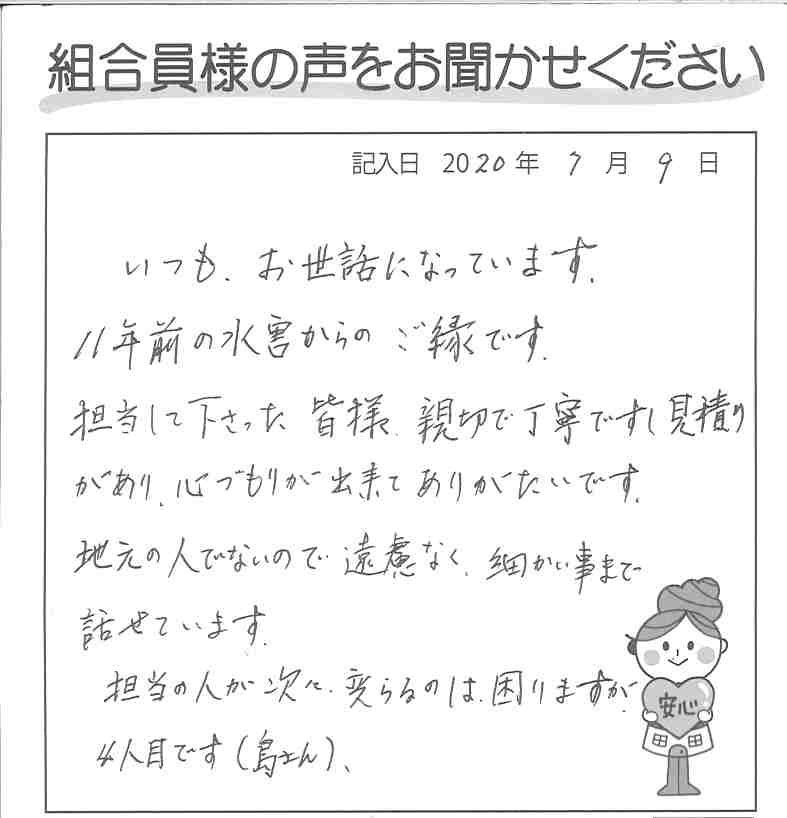 組合員様の声をお聞かせください
記入日 2020年 7月 9日
いつも、お世話になっています。
11年前の水害からの ご縁です。
担当して下さった 皆様、親切で丁寧ですし見積り
があり、心づもりが出来て ありがたいです。
地元の人でないので 遠慮なく、細かい事まで
話せています。
担当の人が次々、変らるのは、困りますが、
4人目です(島さん)、
安心